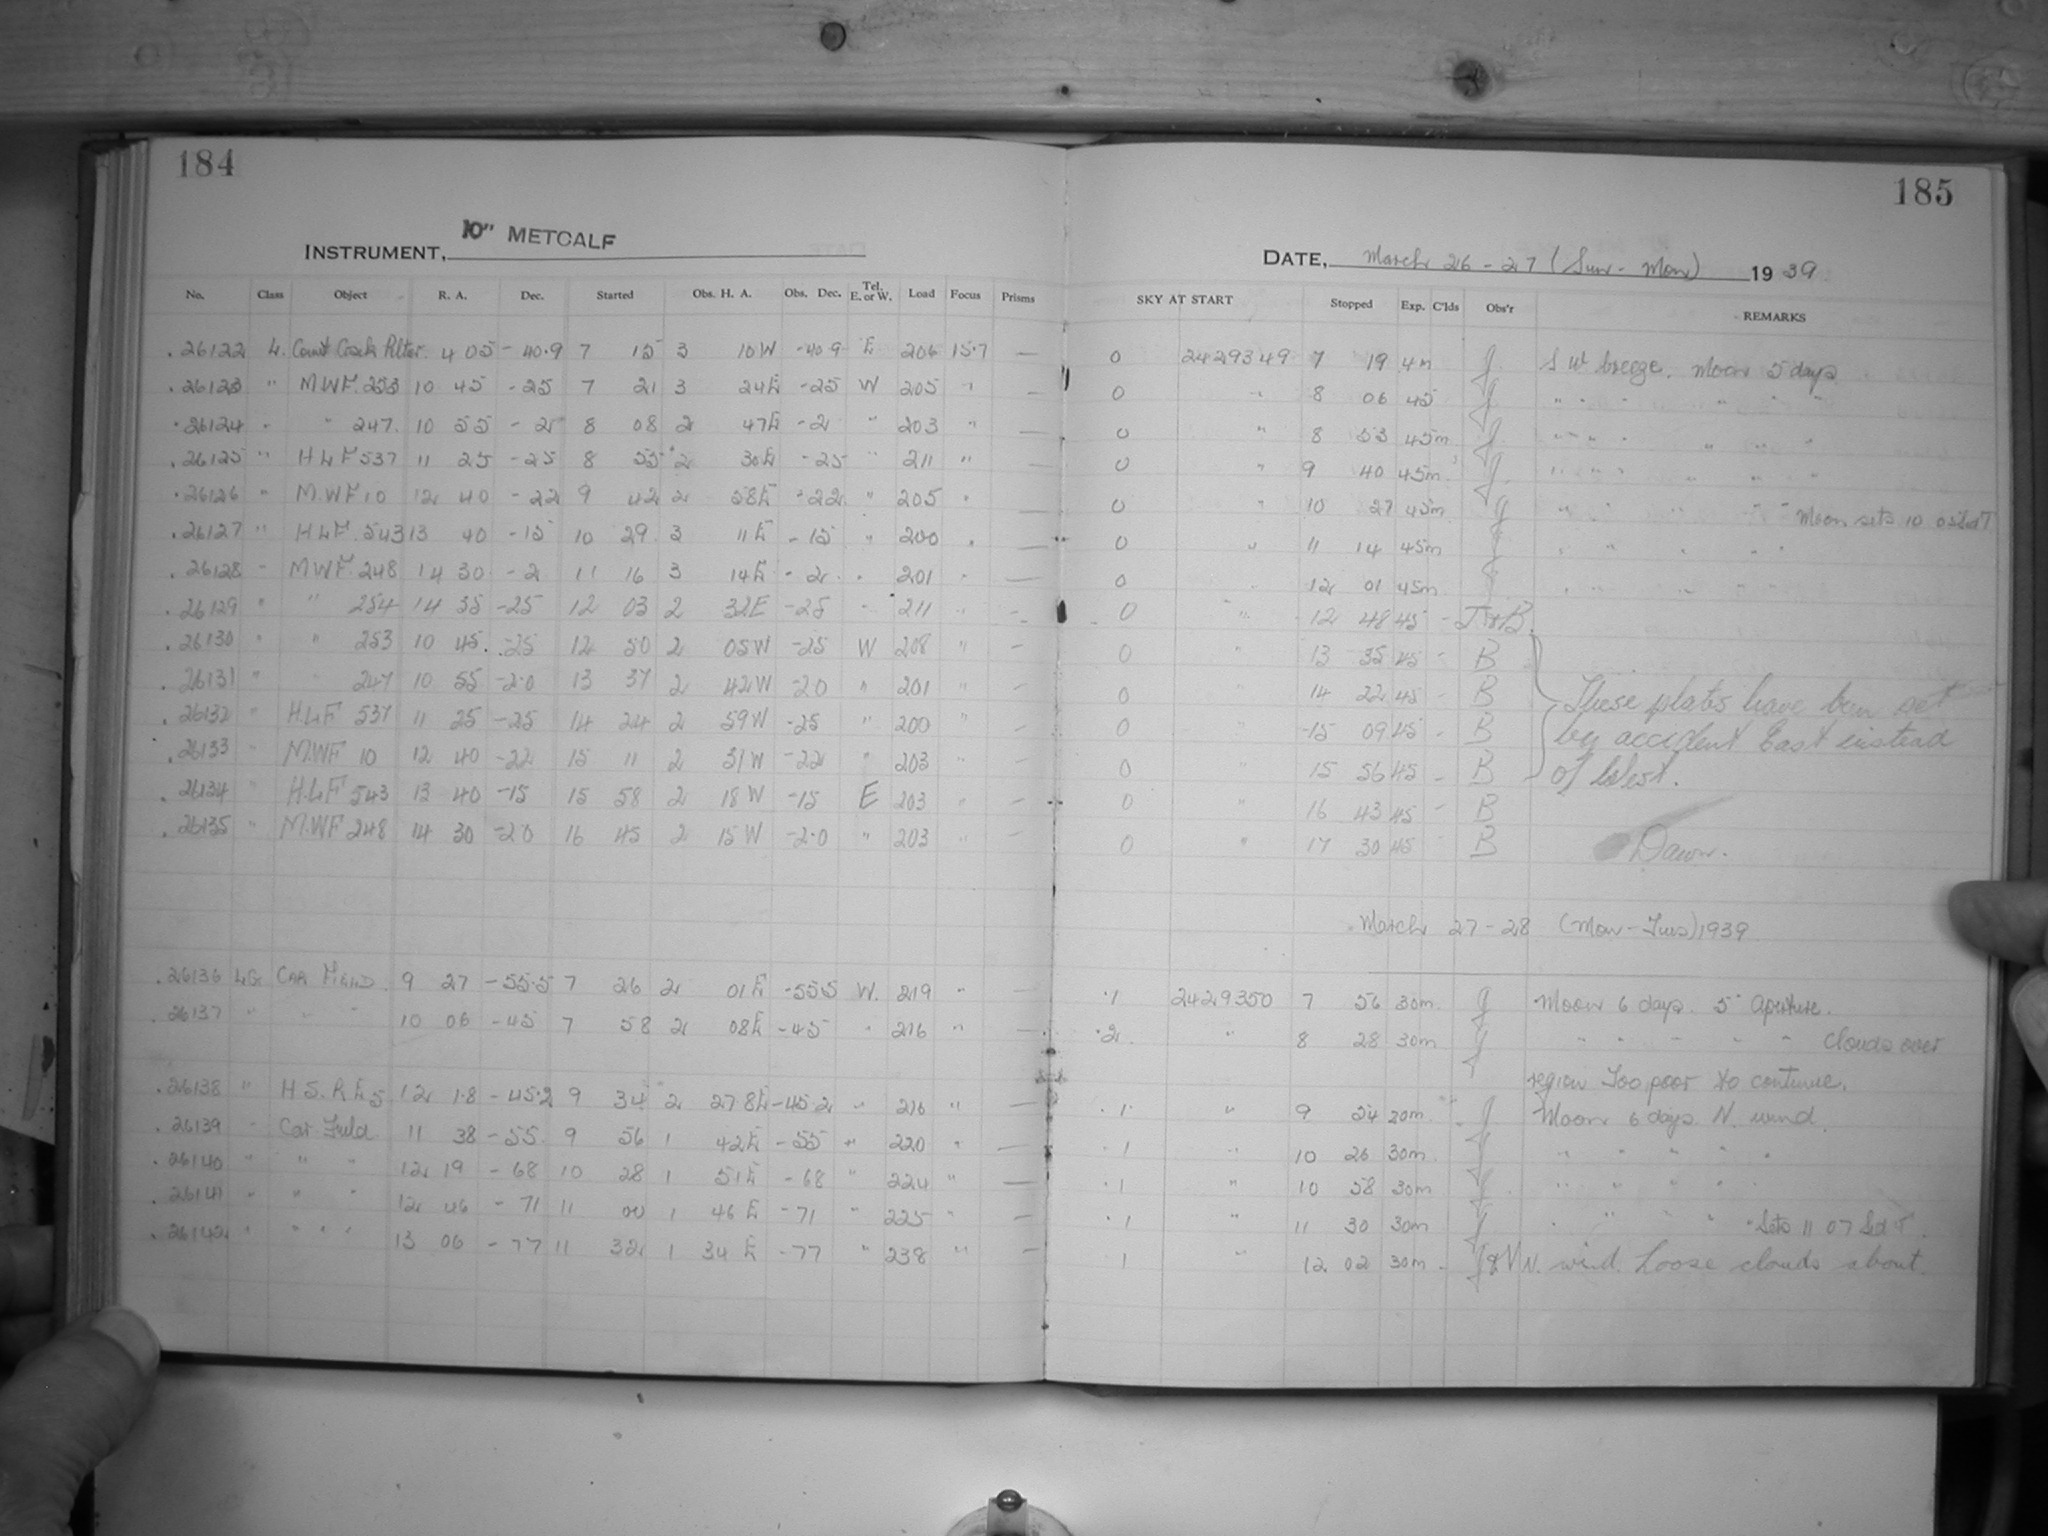 184
INSTRUMENT, 10" METCALF
No. Class Object R. A. Dec. Started Obs. H. A. Obs. Dec. Tel. E. or W. Load Focus Prisms
26122 L. 4 05 -40.9 7 15 3 10W -40.9 E 206 15.7 —
26123 " M.W.F. 253 10 45 -25 7 21 3 24E -25 W 205 " —
26124 " " 247 10 55 -2 8 08 2 47E -2 " 203 " —
26125 " H L F 537 11 25 -25 8 55 2 30E -25 " 211 " —
26126 " M.W F 10 12 40 -22 9 42 2 58E -22 " 205 " —
26127 " H L F. 543 13 40 -15 10 29 3 11E -15 " 200 " —
26128 " MWF. 248 14 30 -2 11 16 3 14E -2 " 201 " —
26129 " " 254 14 35 -25 12 03 2 32E -25 " 211 " —
26130 " " 253 10 45 -25 12 50 2 05W -25 W 208 " —
26131 " " 247 10 55 -2.0 13 37 2 42W -2.0 " 201 " —
26132 " H.L.F 537 11 25 -25 14 24 2 59W -25 " 200 " —
26133 " M.WF 10 12 40 -22 15 11 2 31W -22 " 203 " —
26134 " H.L.F 543 13 40 -15 15 58 2 18W -15 E 203 " —
26135 " M.WF 248 14 30 -2.0 16 45 2 15W -2.0 " 203 " —
26136 CAR FIELD 9 27 -55.5 7 26 2 01E -55.5 W. 219 " —
26137 " " " 10 06 -45 7 58 2 08E -45 " 216 " —
26138 " 12 1.8 -45.2 9 34 2 27.8E -45.2 " 216 " —
26139 " Car. Field 11 38 -55 9 56 1 42E -55 " 220 " —
26140 " " " 12 19 -68 10 28 1 51E -68 " 224 " —
26141 " " " 12 46 -71 11 00 1 46E -71 " 225 " —
26142 " " " 13 06 -77 11 32 1 34E -77 " 238 " —
185
DATE, March 26-27 (Sun-Mon) 1939
SKY AT START Stopped Exp. C'lds Obs'r REMARKS
0 2429349 7 19 4m J. S W breeze. Moon 5 days
0 " 8 06 45 J. " " " " " "
0 " 8 53 45m J. " " " " " "
0 " 9 40 45m J. " " " " " "
0 " 10 27 45m J " " " " " Moon sets 10 05 Sd T
0 " 11 14 45m J " " " " "
0 " 12 01 45m J " " " " "
0 " 12 48 45 - J & B.
0 " 13 35 45 - B
0 " 14 22 45 - B These plates have been set
0 " 15 09 45 - B by accident East instead
0 " 15 56 45 - B of West.
0 " 16 43 45 - B
0 " 17 30 45 B Dawn.
March 27-28 (Mon-Tues) 1939
.1 2429350 7 56 30m J Moon 6 days. 5" Aperture.
.2 " 8 28 30m J " " " " " Clouds over
region Too poor to continue.
.1 " 9 54 20m J Moon 6 days N. wind.
.1 " 10 26 30m J " " " " "
.1 " 10 58 30m J " " " " "
.1 " 11 30 30m J " " " " Sets 11 07 Sd T.
1 " 12 02 30m N. wind. Loose clouds about.